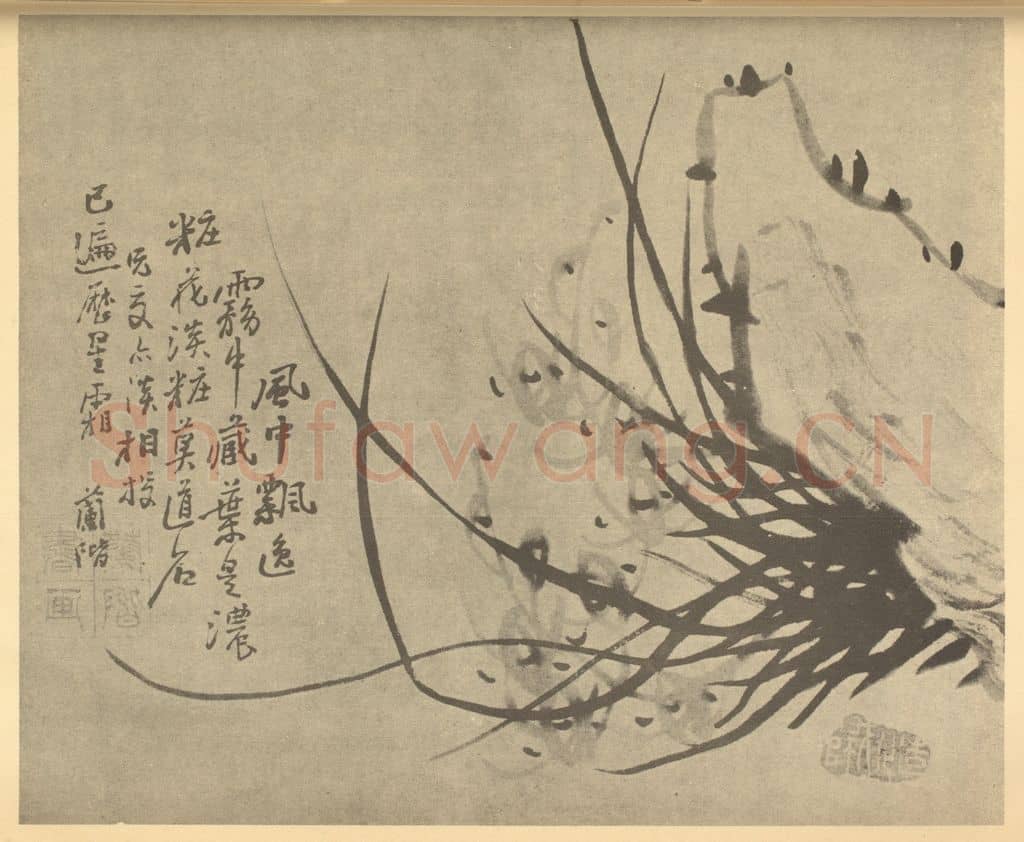 風中飄逸
霧中藏葉是濃
粧花淡粧莫道石
兄交亦淡相投
已遍歷星霜 蘭階
Shufawang.CN